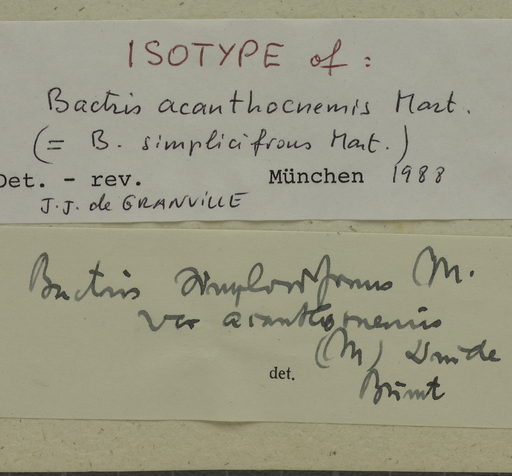 ISOTYPE of :
Bactris acanthocnemis Mart.
(= B. simplicifrons Mart.)
Det. - rev. München 1988
J.J. de GRANVILLE
Bactris simplicifrons M.
var acanthocnemis
(M) Drude
det. Burret